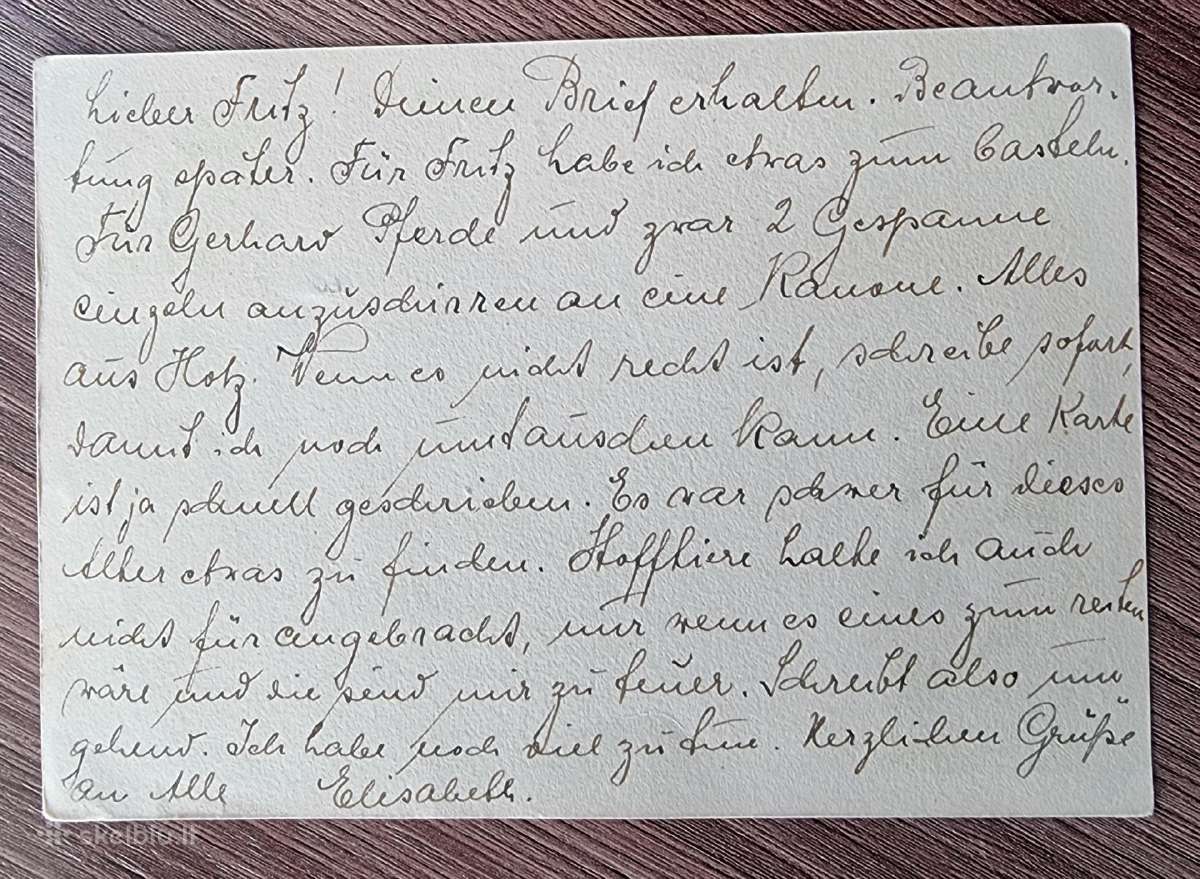 Lieber Fritz! Deinen Brief erhalten. Beantwor-
tung später. Für Fritz habe ich etwas zum basteln.
Für Gerhard Pferde und zwar 2 Gespanne
einzeln anzuschirren an eine Kanone. Alles
aus Holz. Wenn es nicht recht ist, schreibe sofort,
damit ich noch umtauschen kann. Eine Karte
ist ja schnell geschrieben. Es war schwer für dieses
Alter etwas zu finden. Stofftiere halte ich auch
nicht für angebracht, nur wenn es eines zum reiten
wäre und die sind mir zu teuer. Schreibt also um
gehend. Ich habe noch viel zu tun. Herzlichen Grüße
an Alle Elisabeth.
skelbiu.lt